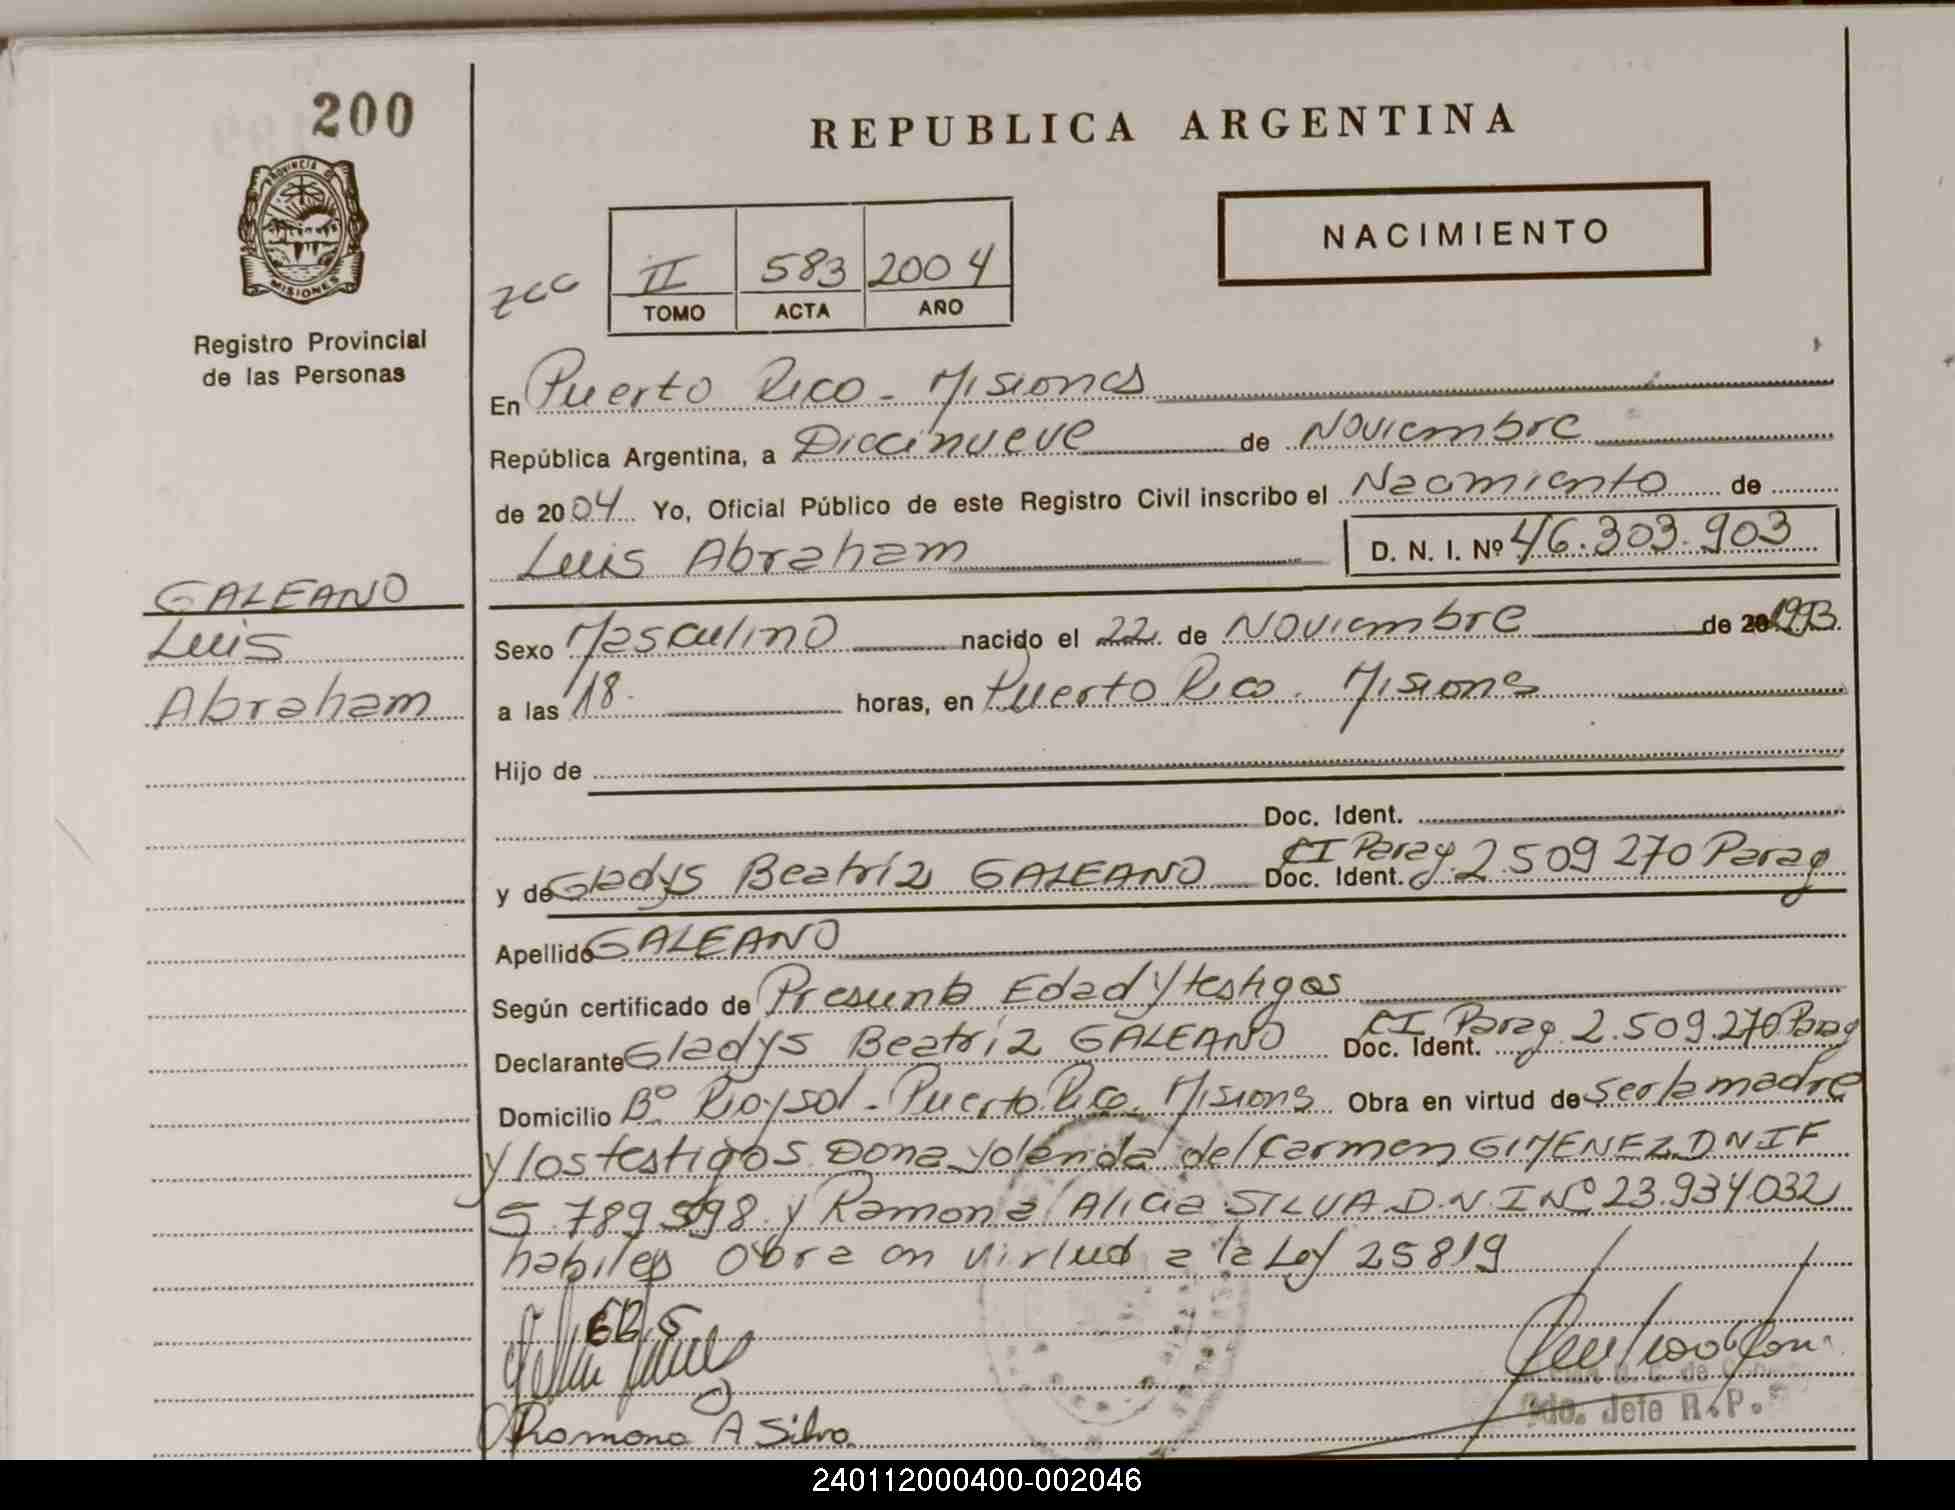 200
REPUBLICA ARGENTINA
PROVINCIA DE
MISIONES
NACIMIENTO
II 583 2004
TOMO ACTA AÑO
Registro Provincial
de las Personas
En Puerto Rico - Misiones
República Argentina, a Diecinueve de Noviembre
de 2004 Yo, Oficial Público de este Registro Civil inscribo el Nacimiento de
Luis Abraham D. N. I. Nº 46.303.903
GALEANO
Luis
Abraham
Sexo Masculino nacido el 22 de Noviembre de 1993
a las 18. horas, en Puerto Rico. Misiones
Hijo de
Doc. Ident.
y de Gladys Beatríz GALEANO Doc. Ident. CI Parag 2.509 270 Parag
Apellido GALEANO
Según certificado de Presunta Edad y testigos
Declarante Gladys Beatríz GALEANO Doc. Ident. CI Parag 2.509.270 Parag
Domicilio Bº Puerto Rico. Misiones Obra en virtud de ser la madre
y los testigos Dona Yolanda del Carmen GIMENEZ DNI F
5.789 y Ramona Alicia SILVA D.N.I Nº 23.934.032
habiles Obra en virtud a la Ley 25819
Ramona A Silva
Jefe R.P.
240112000400-002046